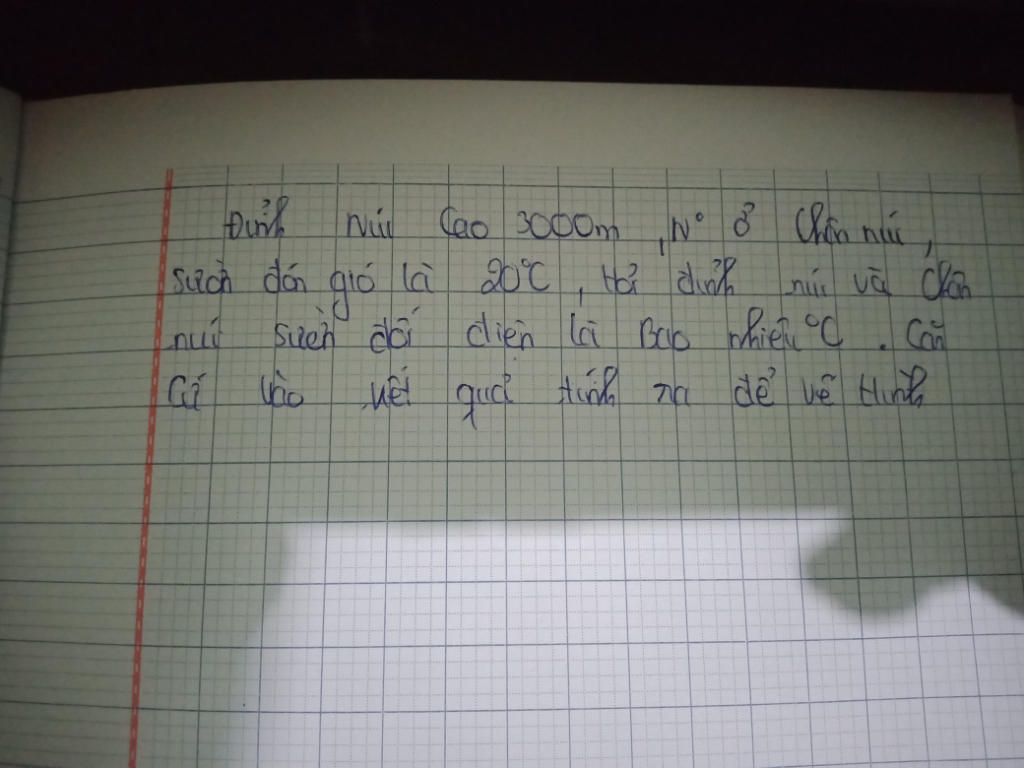 Đỉnh núi cao 3000m, N° ở chân núi,
sườn đón gió là 20°C, Hỏi đỉnh núi và chân
núi sườn đối diện là Bao nhiêu °C. Căn
Cứ vào kết quả tính ra để vẽ Hình